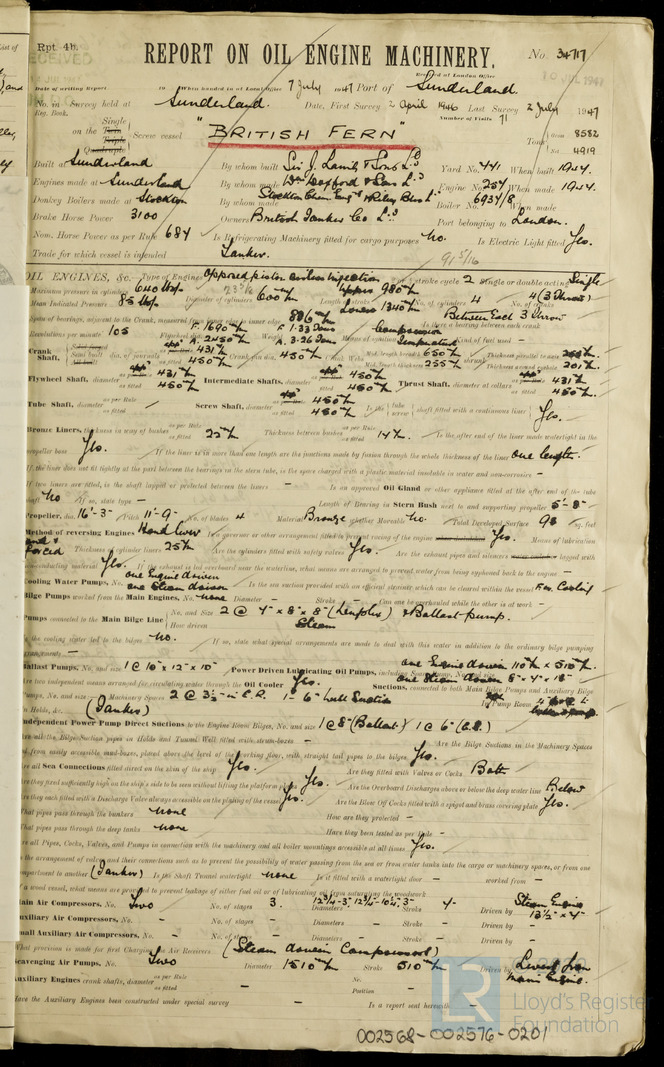 Rpt. 4b.
REPORT ON OIL ENGINE MACHINERY.
No. 34717
Received at London Office
10 JUL 1947
Date of writing Report 19 When handed in at Local Office 7 July 1947 Port of Sunderland.
No. in Reg. Book. Survey held at Sunderland. Date, First Survey 2 April 1946 Last Survey 2 July 1947
Number of Visits 71
Single
on the Twin Screw vessel
Triple
Quadruple
"BRITISH FERN"
Tons Gross 8582
Net 4919
Built at Sunderland By whom built Sir J. Laing & Sons Ld. Yard No. 441 When built 1944.
Engines made at Sunderland By whom made Wm Doxford & Sons Ld. Engine No. 254 When made 1944.
Donkey Boilers made at Stockton By whom made Stockton Chem. Engrs & Riley Blrs Ld. Boiler No. 6934/8 When made
Brake Horse Power 3100 Owners British Tanker Co Ld. Port belonging to London.
Nom. Horse Power as per Rule 684 Is Refrigerating Machinery fitted for cargo purposes No. Is Electric Light fitted Yes.
Trade for which vessel is intended Tanker.
91 5/16
OIL ENGINES, &c. Type of Engines Opposed piston airless injection 2 or 4 stroke cycle 2 Single or double acting Single
Maximum pressure in cylinders 640 lbs. Diameter of cylinders 600 m/m Length of stroke Upper 980 m/m Lower 1340 m/m No. of cylinders 4 No. of cranks 4 (3 Throw)
Mean Indicated Pressure 85 lbs.
Span of bearings, adjacent to the Crank, measured from inner edge to inner edge 886 m/m Is there a bearing between each crank Between Each 3 Throw
Revolutions per minute 105 Flywheel dia. F. 1690 m/m A. 2450 m/m Weight F. 1.33 Tons A. 3.26 Tons Means of ignition Compression Temperature Kind of fuel used –
Crank Shaft, dia. of journals as per Rule app 431 m/m as fitted 450 m/m Crank pin dia. 450 m/m Crank Webs Mid. length breadth 650 m/m Mid. length thickness 255 m/m Thickness parallel to axis Thickness around eyehole 201 m/m
Flywheel Shaft, diameter as per Rule app 431 m/m as fitted 450 m/m Intermediate Shafts, diameter as per Rule app 450 m/m as fitted 450 m/m Thrust Shaft, diameter at collars as per Rule app 431 m/m as fitted 450 m/m
Tube Shaft, diameter as per Rule as fitted Screw Shaft, diameter as per Rule app 450 m/m as fitted 450 m/m Is the tube screw shaft fitted with a continuous liner Yes.
Bronze Liners, thickness in way of bushes as per Rule as fitted 22 m/m Thickness between bushes as per Rule as fitted 14 m/m Is the after end of the liner made watertight in the
propeller boss Yes. If the liner is in more than one length are the junctions made by fusion through the whole thickness of the liner one length.
If the liner does not fit tightly at the part between the bearings in the stern tube, is the space charged with a plastic material insoluble in water and non-corrosive –
If two liners are fitted, is the shaft lapped or protected between the liners – Is an approved Oil Gland or other appliance fitted at the after end of the tube
shaft No If so, state type – Length of Bearing in Stern Bush next to and supporting propeller 5'-8"
Propeller, dia. 16'-3" Pitch 11'-9" No. of blades 4 Material Bronze whether Moveable No. Total Developed Surface 98 sq. feet
Method of reversing Engines Hand lever Is a governor or other arrangement fitted to prevent racing of the engine Yes. Means of lubrication
Forced Thickness of cylinder liners 25 m/m Are the cylinders fitted with safety valves Yes. Are the exhaust pipes and silencers lagged with
non-conducting material Yes. If the exhaust is led overboard near the waterline, what means are arranged to prevent water from being syphoned back to the engine –
Cooling Water Pumps, No. one Engine driven one Steam driven Is the sea suction provided with an efficient strainer which can be cleared within the vessel F.W. Cooling
Bilge Pumps worked from the Main Engines, No. None Diameter – Stroke – Can one be overhauled while the other is at work –
Pumps connected to the Main Bilge Line No. and Size 2 @ 4" x 8" x 8" (Duplex) & Ballast pump.
How driven Steam
Is the cooling water led to the bilges No. If so, state what special arrangements are made to deal with this water in addition to the ordinary bilge pumping
arrangements –
Ballast Pumps, No. and size 1 @ 10" x 12" x 10" Power Driven Lubricating Oil Pumps, including Spare Pump, No. and size one Engine driven 110 m/m x 510 m/m. one Steam driven 8"-9"-18"
Are two independent means arranged for circulating water through the Oil Cooler Yes. Suctions, connected to both Main Bilge Pumps and Auxiliary Bilge
Pumps, No. and size:—In Machinery Spaces 2 @ 3½" in E.R. 1- 6" Well Suction In Pump Room
In Holds, &c. (Tanker)
Independent Power Pump Direct Suctions to the Engine Room Bilges, No. and size 1 @ 8" (Ballast) 1 @ 6" (C.W.)
Are all the Bilge Suction pipes in Holds and Tunnel Well fitted with strum-boxes – Are the Bilge Suctions in the Machinery Spaces
led from easily accessible mud-boxes, placed above the level of the working floor, with straight tail pipes to the bilges Yes.
Are all Sea Connections fitted direct on the skin of the ship Yes. Are they fitted with Valves or Cocks Both
Are they fixed sufficiently high on the ship's side to be seen without lifting the platform plates Yes. Are the Overboard Discharges above or below the deep water line Below
Are they each fitted with a Discharge Valve always accessible on the plating of the vessel Yes. Are the Blow Off Cocks fitted with a spigot and brass covering plate Yes.
What pipes pass through the bunkers None How are they protected –
What pipes pass through the deep tanks None Have they been tested as per Rule –
Are all Pipes, Cocks, Valves, and Pumps in connection with the machinery and all boiler mountings accessible at all times Yes.
Is the arrangement of valves and their connections such as to prevent the possibility of water passing from the sea or from water tanks into the cargo or machinery spaces, or from one
compartment to another (Tanker) Is the Shaft Tunnel watertight None Is it fitted with a watertight door – worked from –
If a wood vessel, what means are provided to prevent leakage of either fuel oil or of lubricating oil from saturating the woodwork
Main Air Compressors, No. Two No. of stages 3. Diameters Stroke 4" Driven by Steam Engine
Auxiliary Air Compressors, No. – No. of stages – Diameters – Stroke – Driven by –
Small Auxiliary Air Compressors, No. – No. of stages – Diameters – Stroke – Driven by –
What provision is made for first Charging the Air Receivers (Steam driven Compressors)
Scavenging Air Pumps, No. Two Diameter 1510 m/m Stroke 510 m/m Driven by Levers from Main Engine.
Auxiliary Engines crank shafts, diameter as per Rule as fitted – No. Position –
Have the Auxiliary Engines been constructed under special survey – Is a report sent herewith –
LR
Lloyd's Register
Foundation
002568-002576-0201